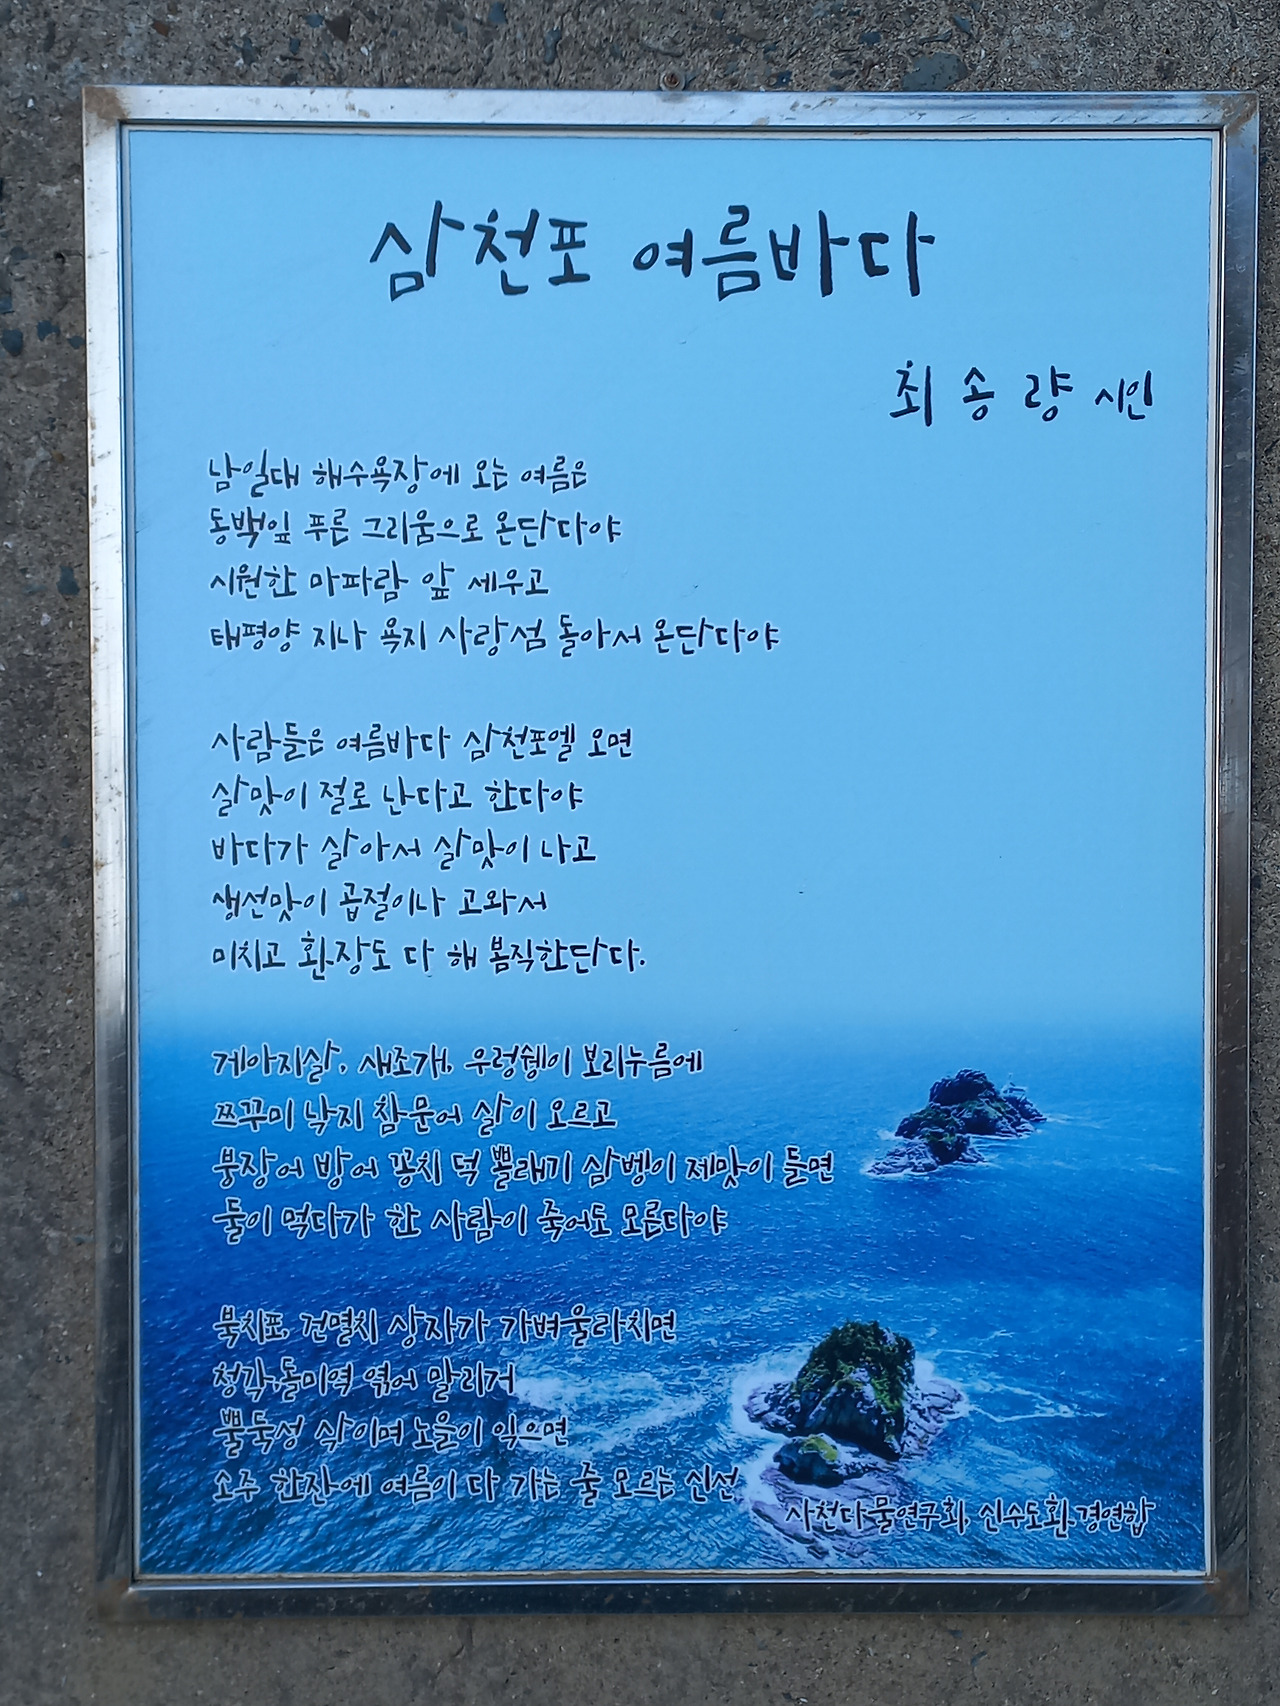 삼천포 여름바다
최송량 시인
남일대 해수욕장에 오는 여름은
동백잎 푸른 그리움으로 온단다야
시원한 마파람 앞 세우고
태평양 지나 욕지 사랑섬 돌아서 온단다야
사람들은 여름바다 삼천포엘 오면
살맛이 절로 난다고 한다야
바다가 살아서 살맛이 나고
생선맛이 곱절이나 고와서
미치고 환장도 다 해 봄직한단다.
게아지살, 새조개, 우렁쉥이 보리누름에
쯔꾸미 낙지 참문어 살이 오르고
붕장어 방어 꽁치 덕 뽈래기 삼벵이 제맛이 들면
둘이 먹다가 한 사람이 죽어도 모른다야
북치포, 건멸치 상자가 가벼울라치면
청각,돌미역 엮어 말리거
뿔둑성 삭이며 노을이 익으면
소주 한잔에 여름이 다 가는 줄 모르는 신선
사천다물연구회, 신수도환경연합